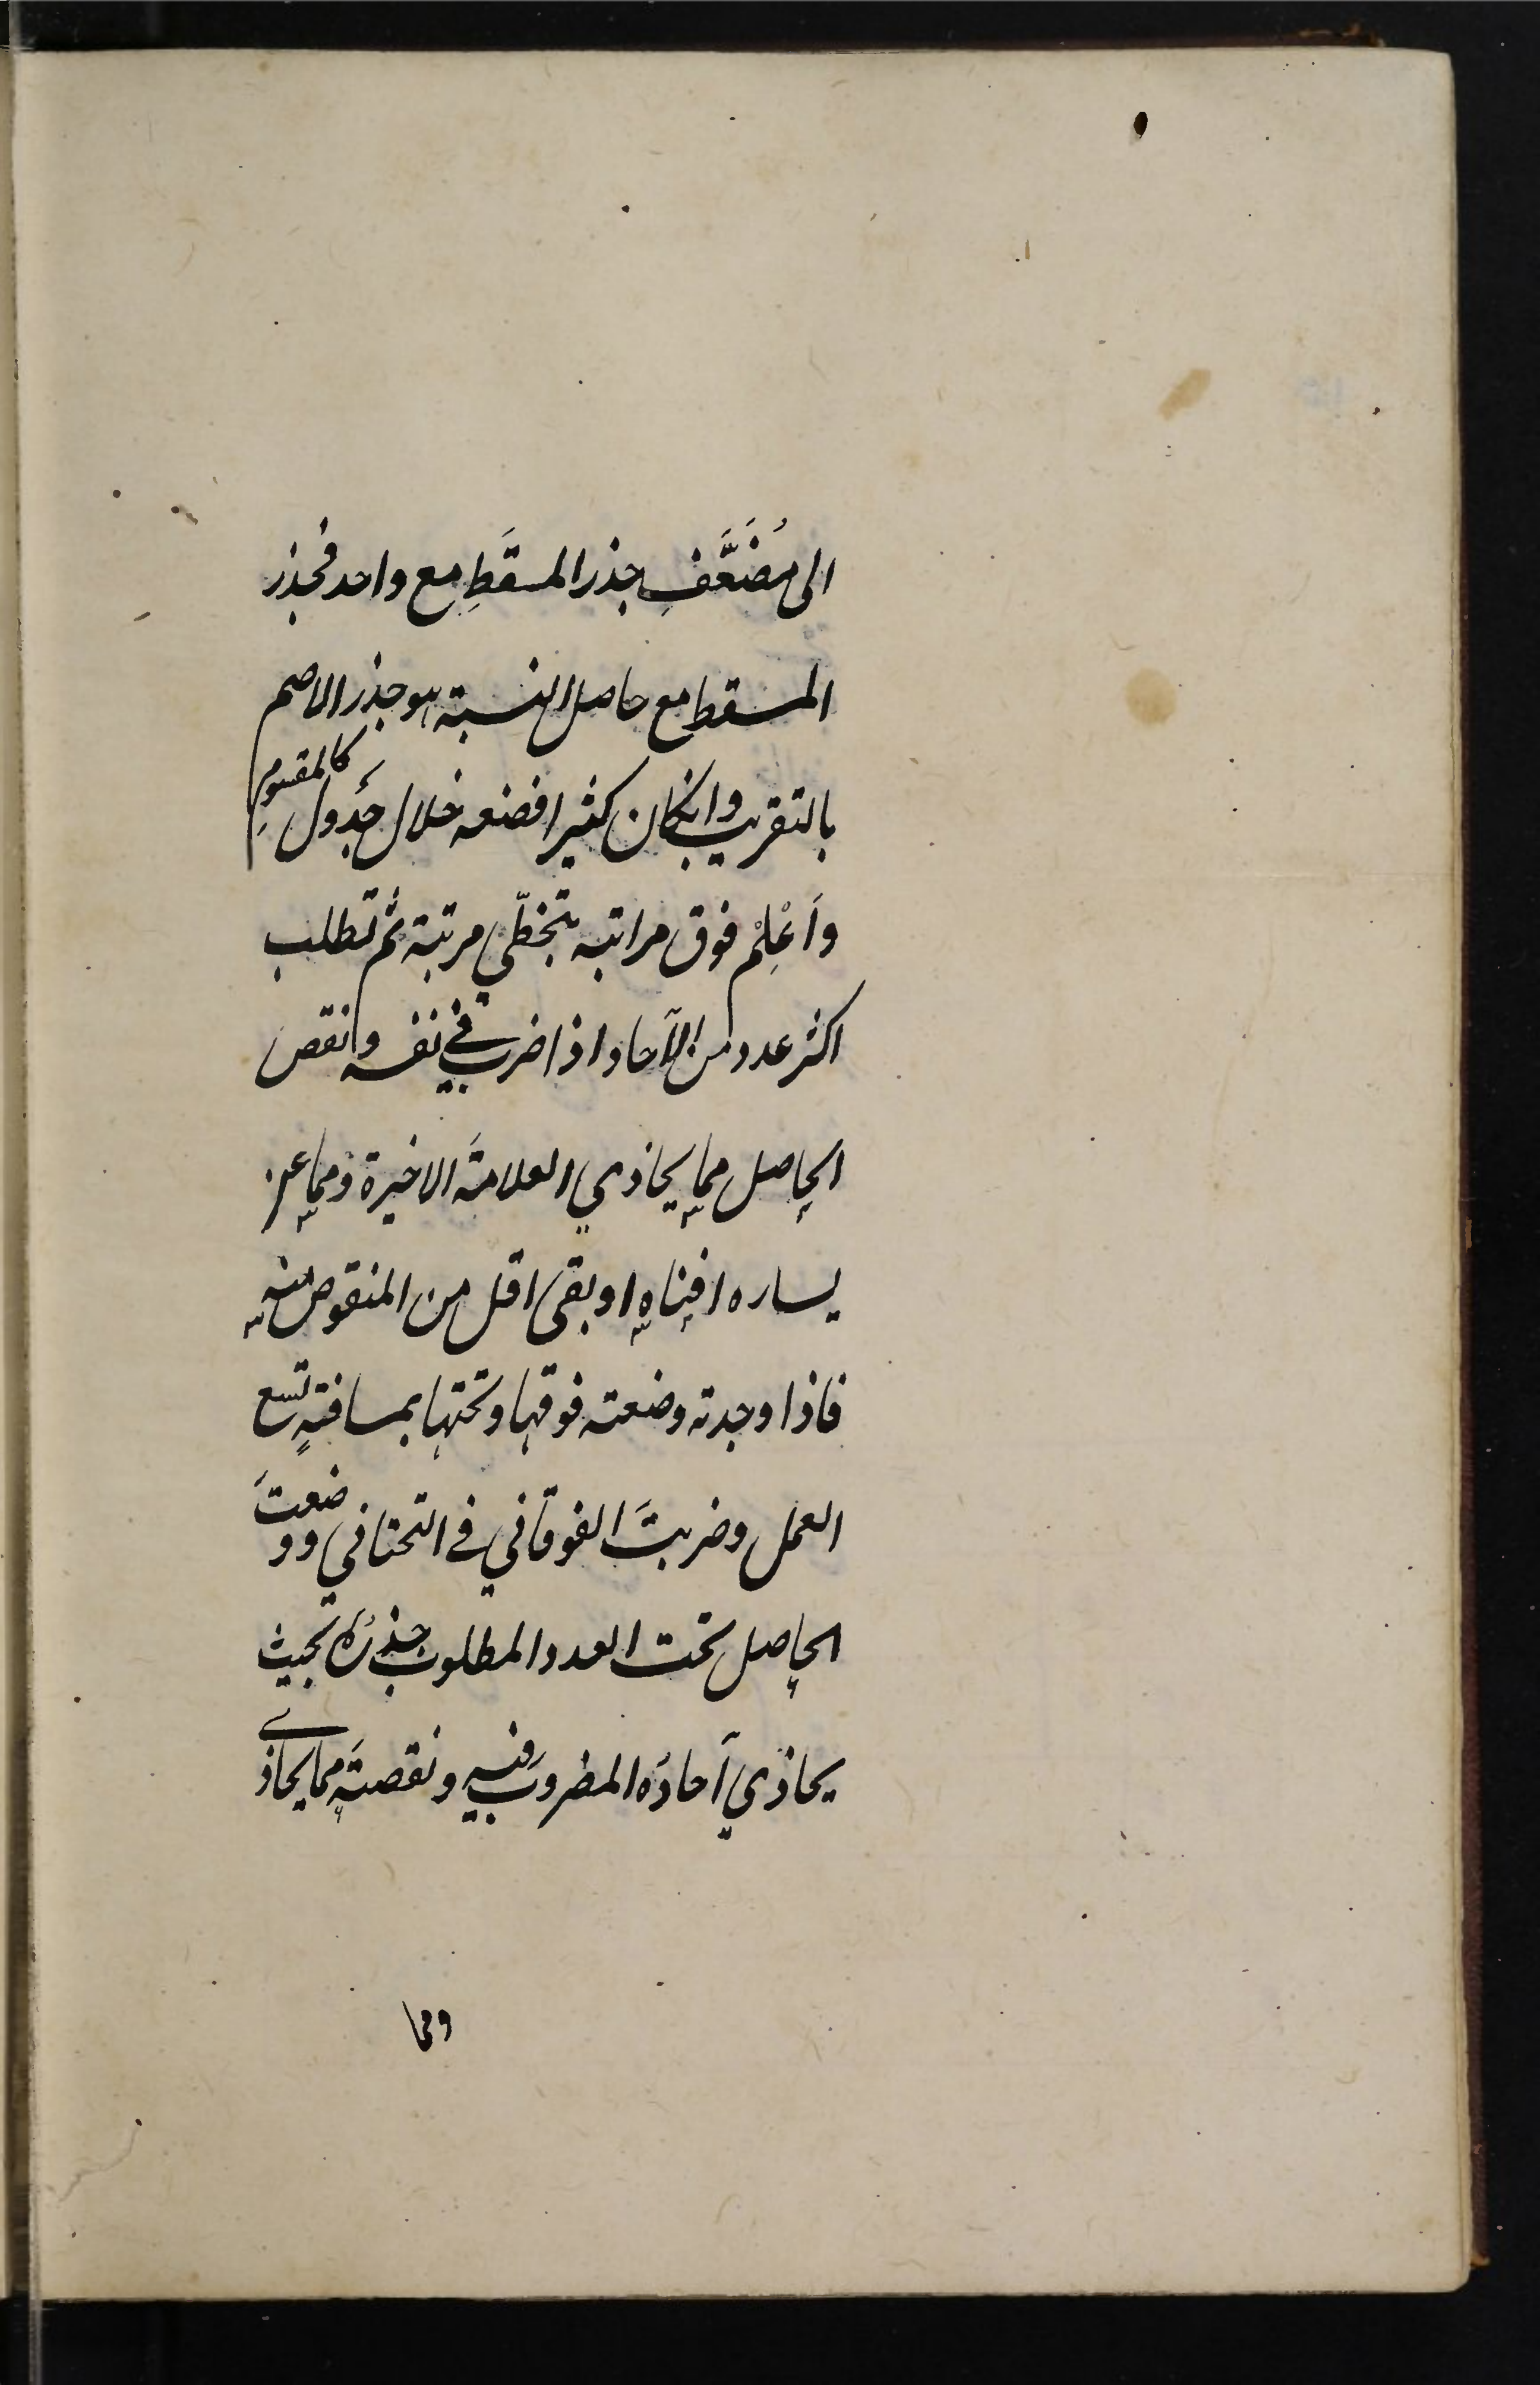 الى مُضَعَّفِ جذر المسقَطِ مع واحد فجذر
المسقط مع حاصل النسبة هو جذر الاصم
بالتقريب وانكان كثيرا فضعه خلال جَدول كالمقسومِ
وأَعْلِمْ فوق مراتبه بتخطّي مرتبة ثم تطلب
اكثر عدد من الآحاد اذا ضرب في نفسه وانقص
الحاصل مما يحاذي العلامةَ الاخيرة ومما عن
يساره افناه او بقى اقل من المنقوص منه
فاذا وجدته وضعته فوقها وتحتها بمسافةٍ تسع
العمل وضربتَ الفوقاني في التحتاني ووضعتَ
الحاصل تحت العدد المطلوب جذرُه بحيث
يحاذي آحادُه المضروبَ فيه ونقصتَه مما يحاذى
ومما